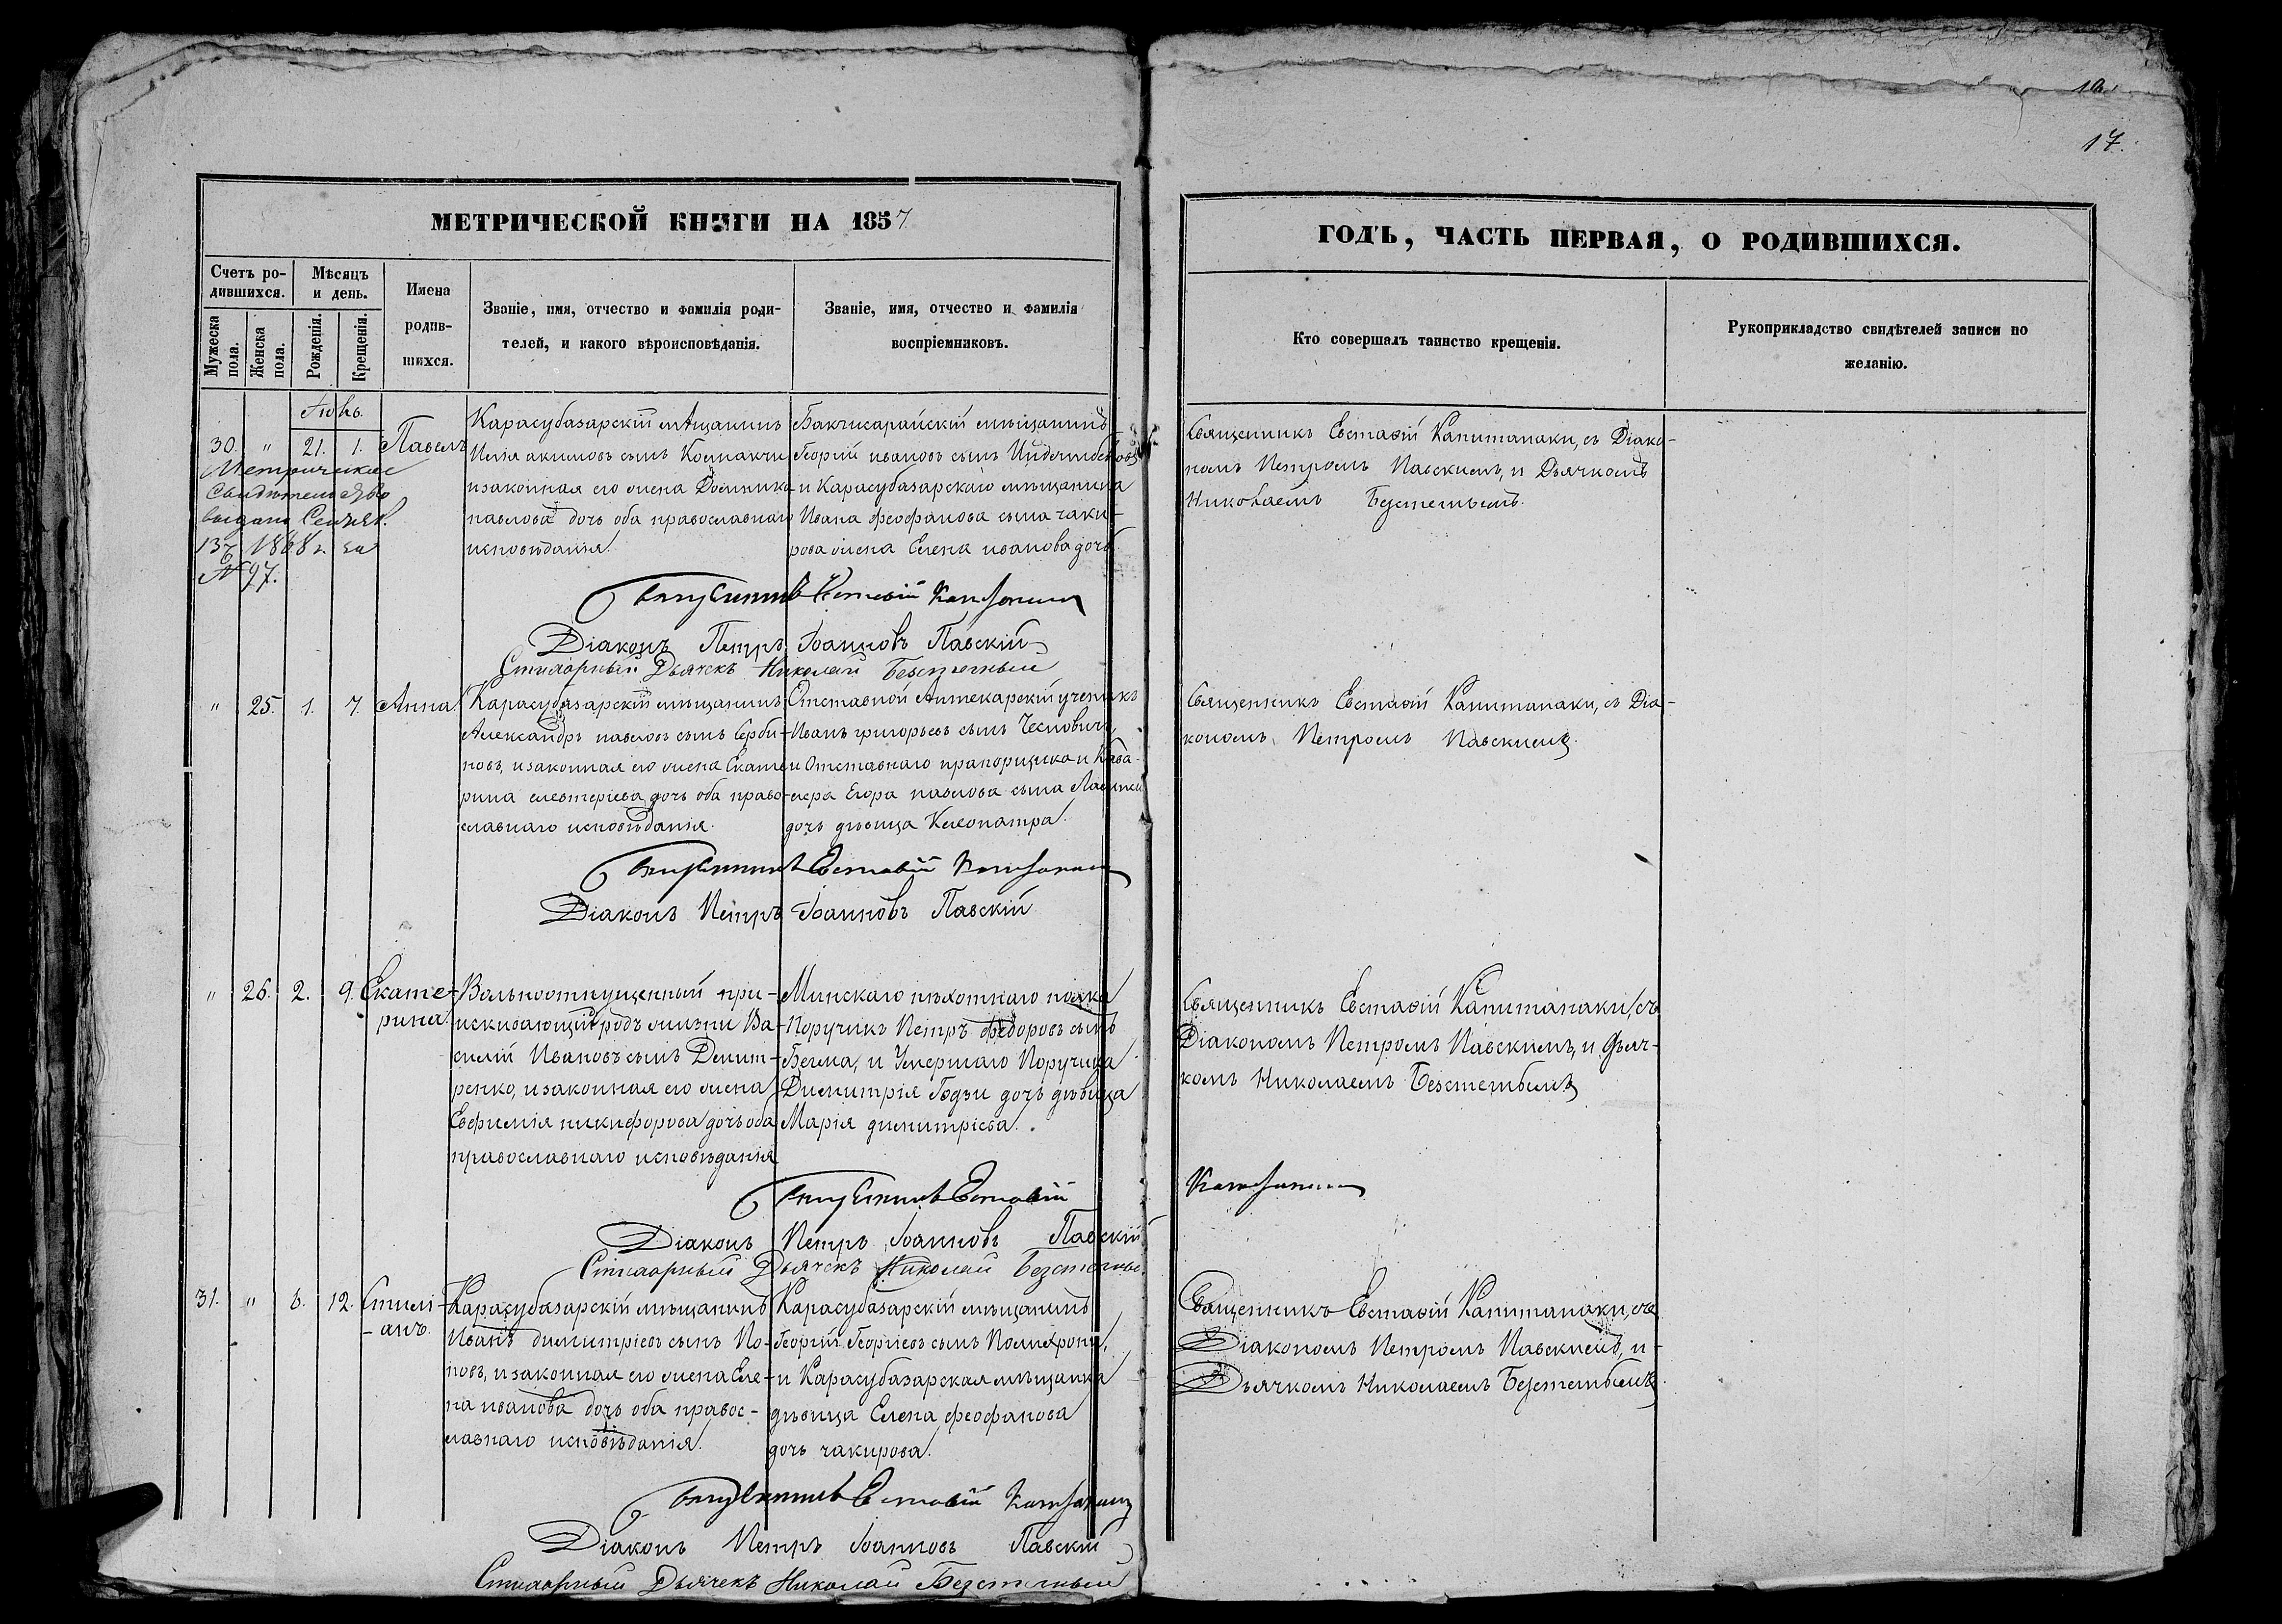 16.
17.
МЕТРИЧЕСКОЙ КНИГИ НА 1857
ГОДЪ, ЧАСТЬ ПЕРВАЯ, О РОДИВШИХСЯ.
Счетъ ро-
дившихся.
Мѣсяцъ
и день.
Мужеска
пола.
Женска
пола.
Рожденія.
Крещенія.
Имена
родив-
шихся.
Званіе, имя, отчество и фамилія роди-
телей, и какого вѣроисповѣданія.
Званіе, имя, отчество и фамилія
воспріемниковъ.
Кто совершалъ таинство крещенія.
Рукоприкладство свидѣтелей записи по
желанію.
30. " 21. 1. Павелъ
Метрическое
Свидѣтельство
выдано Сентяб.
13 1868 г. за
№ 97.
Карасубазарскій мѣщанинъ
Илія акимовъ сынъ
и законная его жена
павлова дочь оба православнаго
исповѣданія.
Бакчисарайскій мѣщанинъ
Георгій ивановъ сынъ
и Карасубазарскаго мѣщанина
Ивана феофанова сына чаки-
рова жена Елена иванова дочь
Священникъ Евстафій Капитанаки, съ Діако-
номъ Петромъ Павскимъ, и Дьячкомъ
Николаемъ Безстетымъ.
Священникъ Евстафій Капитанаки
Діаконъ Петръ Іоанновъ Павскій
Стихарный Дьячекъ Николай
" 25. 1. 7. Анна
Карасубазарскій мѣщанинъ
Александръ павловъ сынъ Серби-
новъ, и законная его жена Екате-
рина елевтеріева дочь оба право-
славнаго исповѣданія.
Отставной Аптекарскій ученикъ
Иванъ григорьевъ сынъ Чесновичъ,
и Отставнаго прапорщика и Кава-
лера Егора павлова сына
дочь дѣвица Клеопатра.
Священникъ Евстафій Капитанаки, съ Діа-
кономъ Петромъ Павскимъ
Священникъ Евстафій Капитанаки
Діаконъ Петръ Іоанновъ Павскій
" 26. 2. 9. Екате-
рина.
Вольноотпущенный при-
искивающій родъ жизни Ва-
силій Ивановъ сынъ Дмит-
ренко, и законная его жена
Евфимія никифорова дочь оба
православнаго исповѣданія
Минскаго пѣхотнаго полка
Поручикъ Петръ федоровъ сынъ
Бегма, и Умершаго Поручика
Димитрія Годзи дочь дѣвица
Марія димитріева.
Священникъ Евстафій Капитанаки, съ
Діакономъ Петромъ Павскимъ, и дьяч-
комъ Николаемъ
Священникъ Евстафій Капитанаки
Діаконъ Петръ Іоанновъ Павскій
Стихарный Дьячекъ Николай
31. " 6. 12. Стили-
-анъ.
Карасубазарскій мѣщанинъ
Иванъ димитріевъ сынъ По-
повъ, и законная его жена Еле-
на иванова дочь оба правос-
лавнаго исповѣданія.
Карасубазарскій мѣщанинъ
Георгій Георгіевъ сынъ Полихрони,
и Карасубазарская мѣщанка
дѣвица Елена феофанова
дочь чакирова.
Священникъ Евстафій Капитанаки, съ
Діакономъ Петромъ Павскимъ, и
Дьячкомъ Николаемъ
Священникъ Евстафій Капитанаки
Діаконъ Петръ Іоанновъ Павскій
Стихарный Дьячекъ Николай